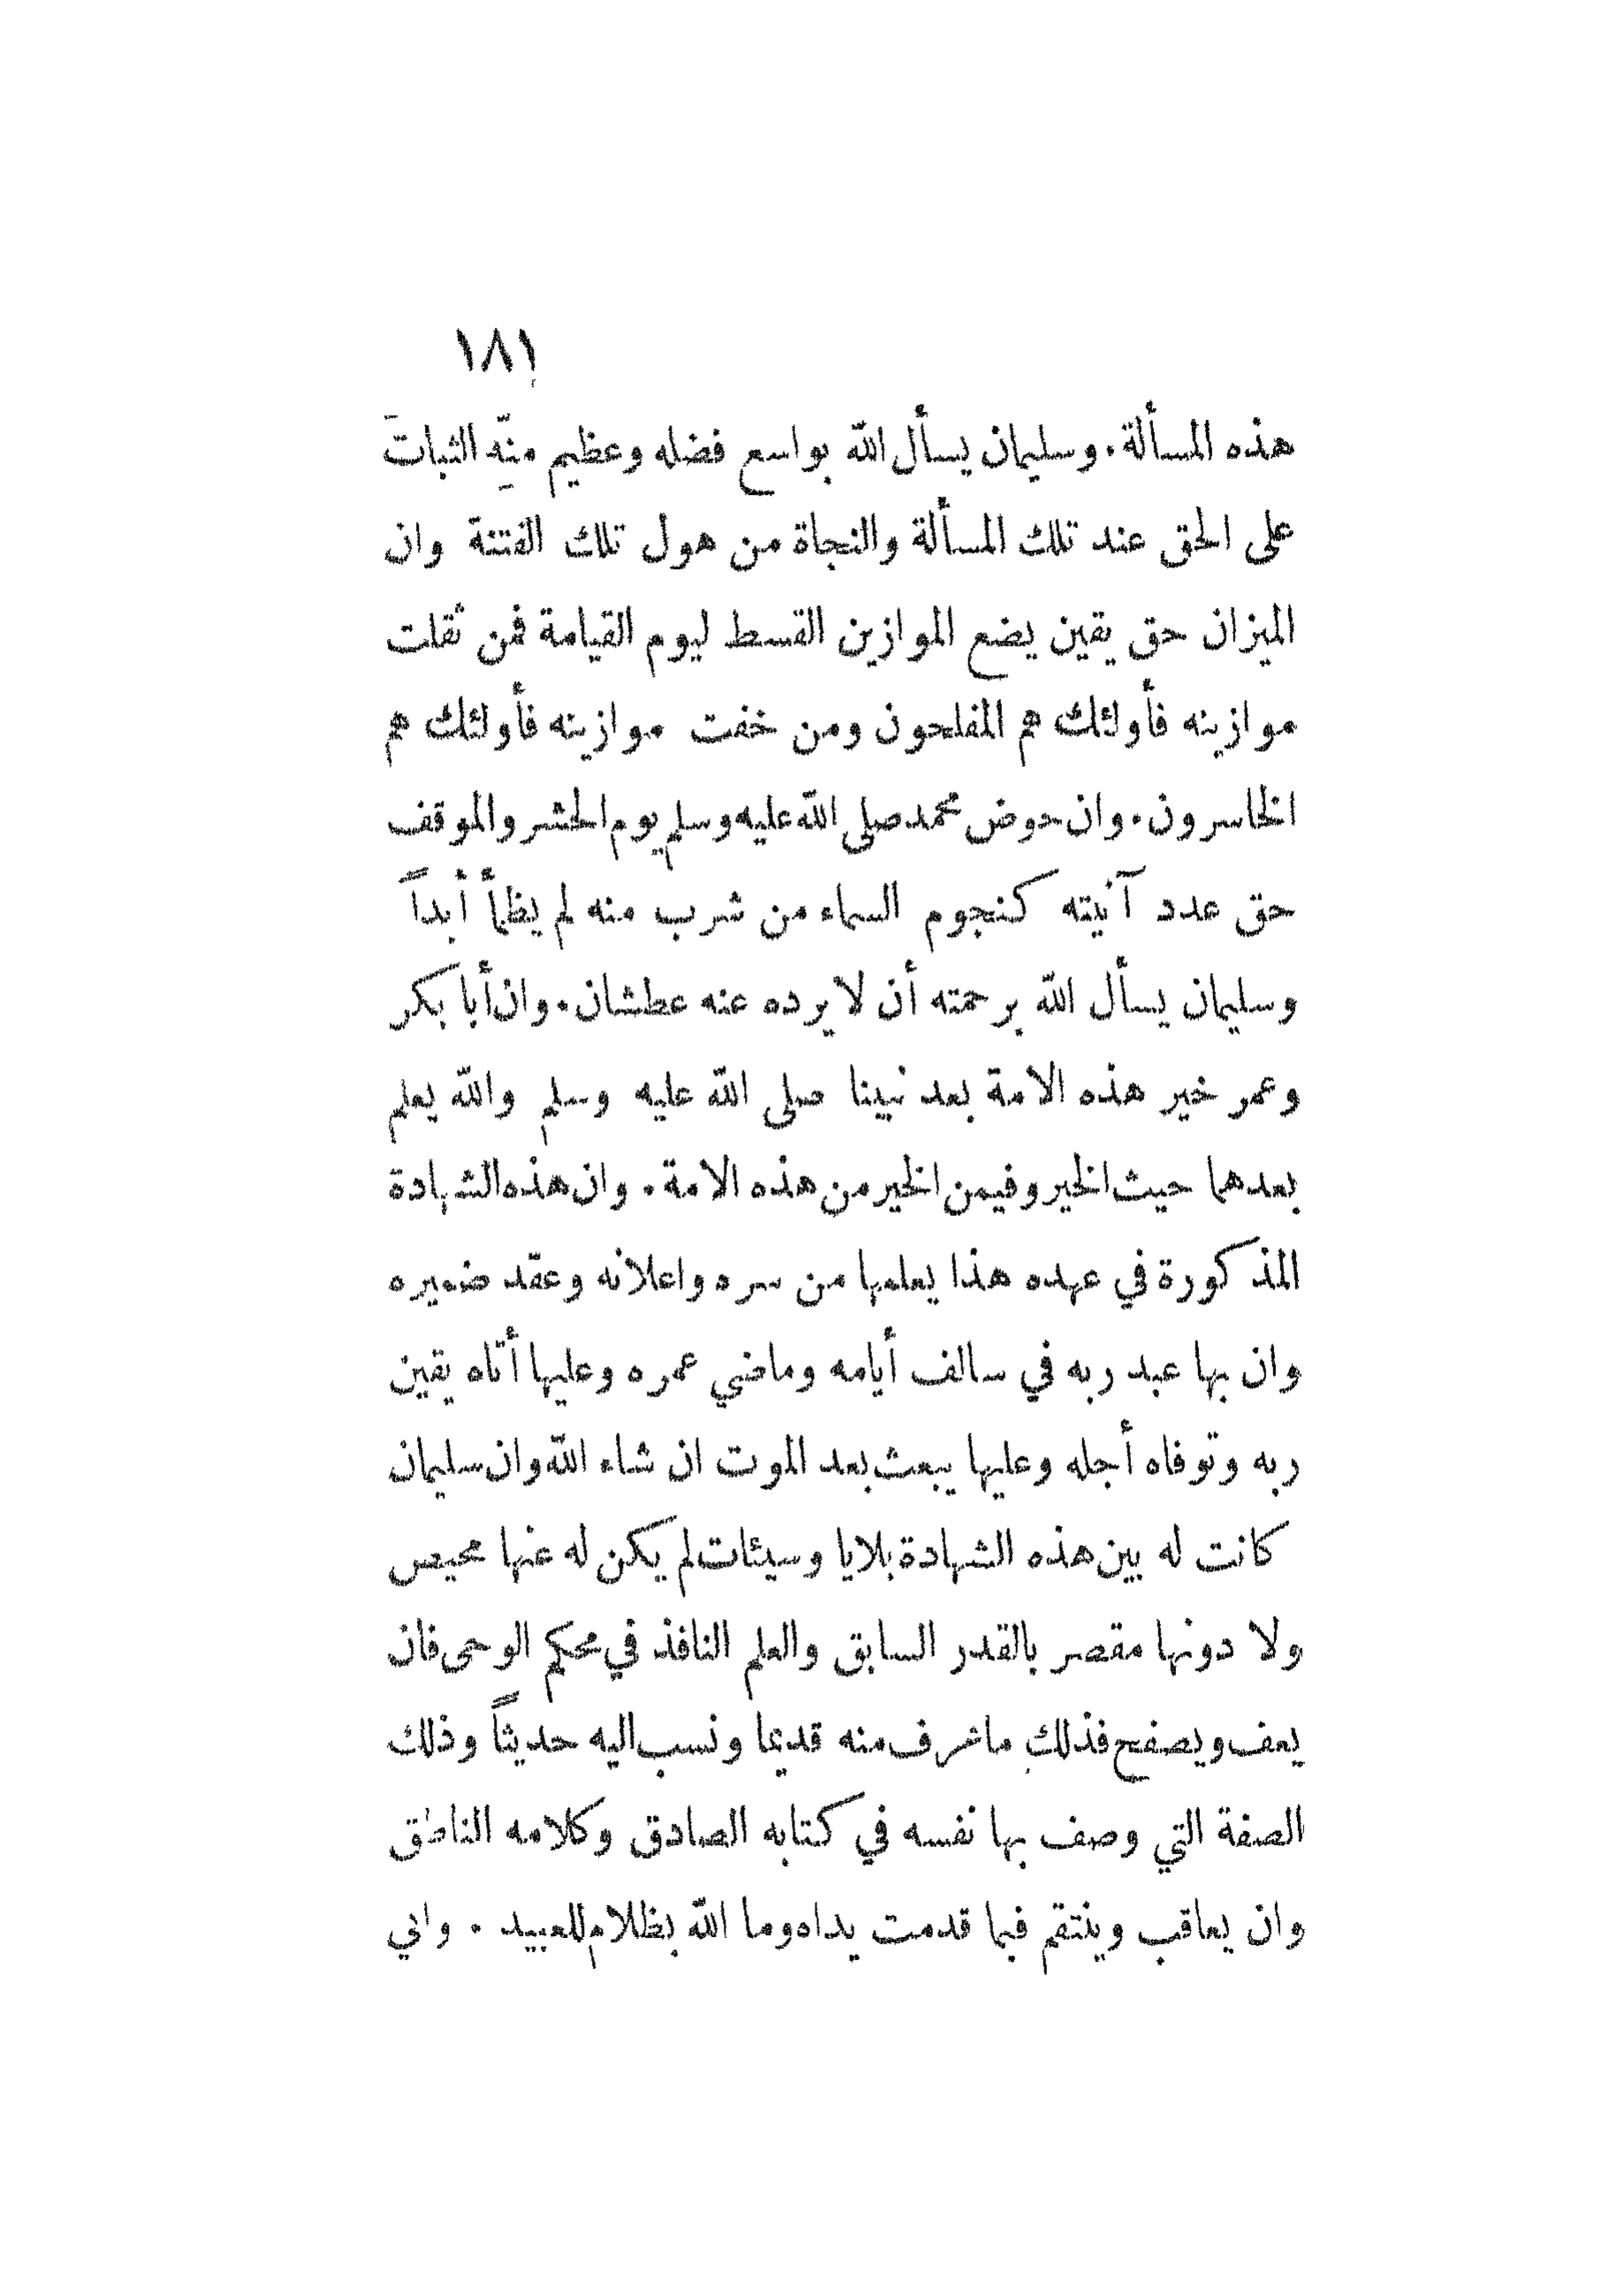 ١٨١
هذه المسألة. وسليمان يسأل اللّه بواسع فضله وعظيم منِّه الثباتَ
على الحق عند تلك المسألة والنجاة من هول تلك الفتنة وان
الميزان حق يقين يضع الموازين القسط ليوم القيامة فمن ثقلت
موازينه فأولئك هم المفلحون ومن خفت موازينه فأولئك هم
الخاسرون. وان حوض محمد صلى اللّه عليه وسلم يوم الحشر والموقف
حق عدد آنيته كنجوم السماء من شرب منه لم يظمأ أبداً
وسليمان يسأل اللّه برحمته أن لا يرده عنه عطشان. وان أبا بكر
وعمر خير هذه الامة بعد نبينا صلى اللّه عليه وسلم واللّه يعلم
بعدهما حيث الخير وفيمن الخير من هذه الامة. وان هذه الشهادة
المذكورة في عهده هذا يعلمها من سره واعلانه وعقد ضميره
وان بها عبد ربه في سالف أيامه وماضي عمره وعليها أتاه يقين
ربه وتوفاه أجله وعليها يبعث بعد الموت ان شاء اللّه وان سليمان
كانت له بين هذه الشهادة بلايا وسيئات لم يكن له عنها محيص
ولا دونها مقصر بالقدر السابق والعلم النافذ في محكم الوحى فان
يعف ويصفح فذلك ما عرف منه قديما ونسب اليه حديثاً وذلك
الصفة التي وصف بها نفسه في كتابه الصادق وكلامه الناطق
وان يعاقب وينتقم فبما قدمت يداه وما اللّه بظلام للعبيد. واني